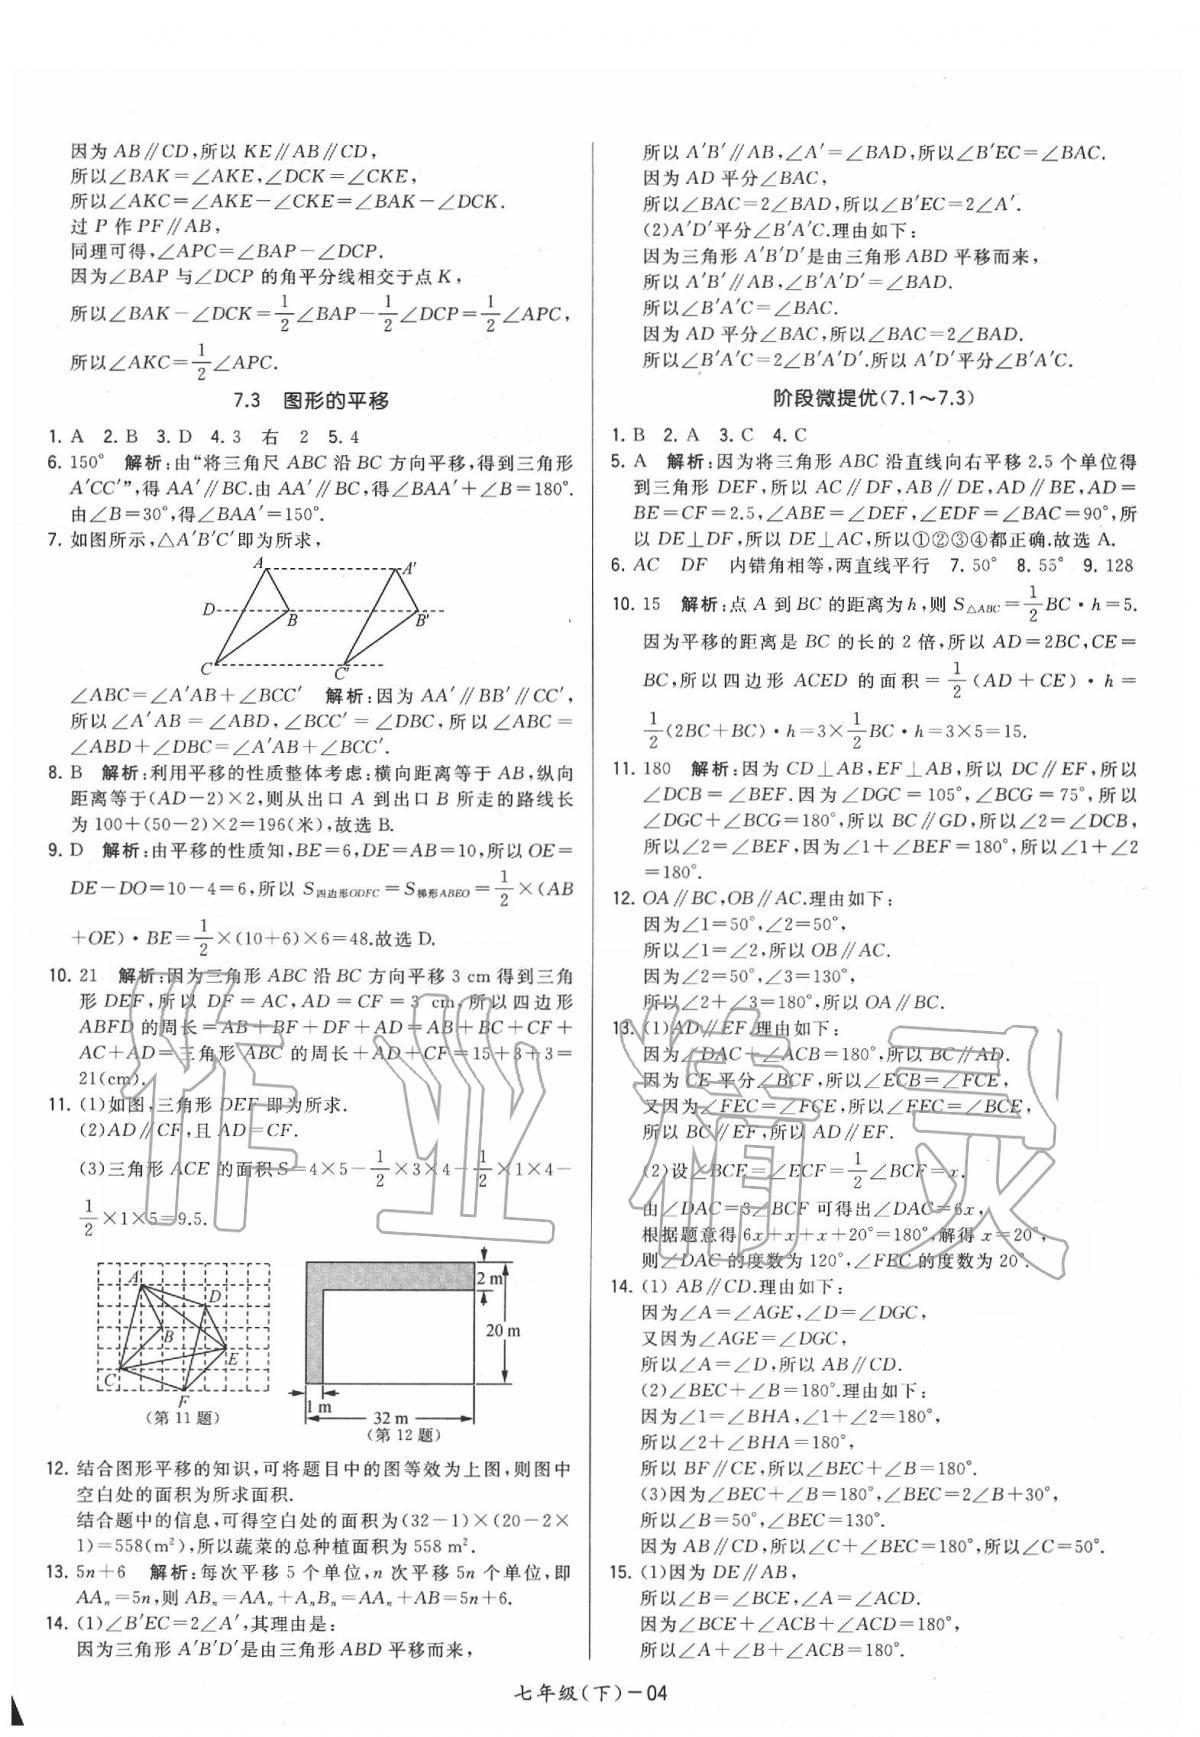 因为 AB∥CD,所以 KE∥AB∥CD,
所以∠BAK=∠AKE,∠DCK=∠CKE,
所以∠AKC=∠AKE-∠CKE=∠BAK-∠DCK.
过 P 作 PF∥AB,
同理可得,∠APC=∠BAP-∠DCP.
因为∠BAP 与∠DCP 的角平分线相交于点 K,
所以∠BAK-∠DCK=1/2∠BAP-1/2∠DCP=1/2∠APC,
所以∠AKC=1/2∠APC.
7.3 图形的平移
1. A 2. B 3. D 4. 3 右 2 5. 4
6. 150° 解析:由“将三角尺 ABC 沿 BC 方向平移,得到三角形
A′CC′”,得 AA′∥BC.由 AA′∥BC,得∠BAA′+∠B=180°.
由∠B=30°,得∠BAA′=150°.
7. 如图所示,△A′B′C′即为所求,
A A′
D B B′
C C′
∠ABC=∠A′AB+∠BCC′ 解析:因为 AA′∥BB′∥CC′,
所以∠A′AB=∠ABD,∠BCC′=∠DBC,所以∠ABC=
∠ABD+∠DBC=∠A′AB+∠BCC′.
8. B 解析:利用平移的性质整体考虑:横向距离等于 AB,纵向
距离等于(AD-2)×2,则从出口 A 到出口 B 所走的路线长
为 100+(50-2)×2=196(米),故选 B.
9. D 解析:由平移的性质知,BE=6,DE=AB=10,所以 OE=
DE-DO=10-4=6,所以 S四边形ODFC=S梯形ABEO=1/2×(AB
+OE)·BE=1/2×(10+6)×6=48.故选 D.
10. 21 解析:因为三角形 ABC 沿 BC 方向平移 3 cm 得到三角
形 DEF,所以 DF=AC,AD=CF=3 cm,所以四边形
ABFD 的周长=AB+BF+DF+AD=AB+BC+CF+
AC+AD=三角形 ABC 的周长+AD+CF=15+3+3=
21(cm).
11. (1)如图,三角形 DEF 即为所求.
(2)AD∥CF,且 AD=CF.
(3)三角形 ACE 的面积 S=4×5-1/2×3×4-1/2×1×4-
1/2×1×5=9.5.
A D B E C F
(第 11 题)
2 m
20 m
1 m
32 m
(第 12 题)
12. 结合图形平移的知识,可将题目中的图等效为上图,则图中
空白处的面积为所求面积.
结合题中的信息,可得空白处的面积为(32-1)×(20-2×
1)=558(m²),所以蔬菜的总种植面积为 558 m².
13. 5n+6 解析:每次平移 5 个单位,n 次平移 5n 个单位,即
AAₙ=5n,则 ABₙ=AAₙ+AₙBₙ=AAₙ+AB=5n+6.
14. (1)∠B′EC=2∠A′,其理由是:
因为三角形 A′B′D′是由三角形 ABD 平移而来,
所以 A′B′∥AB,∠A′=∠BAD,所以∠B′EC=∠BAC.
因为 AD 平分∠BAC,
所以∠BAC=2∠BAD,所以∠B′EC=2∠A′.
(2)A′D′平分∠B′A′C.理由如下:
因为三角形 A′B′D′是由三角形 ABD 平移而来,
所以 A′B′∥AB,∠B′A′D′=∠BAD.
所以∠B′A′C=∠BAC.
因为 AD 平分∠BAC,所以∠BAC=2∠BAD.
所以∠B′A′C=2∠B′A′D′.所以 A′D′平分∠B′A′C.
阶段微提优(7.1～7.3)
1. B 2. A 3. C 4. C
5. A 解析:因为将三角形 ABC 沿直线向右平移 2.5 个单位得
到三角形 DEF,所以 AC∥DF,AB∥DE,AD∥BE,AD=
BE=CF=2.5,∠ABE=∠DEF,∠EDF=∠BAC=90°,所
以 DE⊥DF,所以 DE⊥AC,所以①②③④都正确.故选 A.
6. AC DF 内错角相等,两直线平行 7. 50° 8. 55° 9. 128
10. 15 解析:点 A 到 BC 的距离为 h,则 S△ABC=1/2BC·h=5.
因为平移的距离是 BC 的长的 2 倍,所以 AD=2BC,CE=
BC,所以四边形 ACED 的面积=1/2(AD+CE)·h=
1/2(2BC+BC)·h=3×1/2BC·h=3×5=15.
11. 180 解析:因为 CD⊥AB,EF⊥AB,所以 DC∥EF,所以
∠DCB=∠BEF.因为∠DGC=105°,∠BCG=75°,所以
∠DGC+∠BCG=180°,所以 BC∥GD,所以∠2=∠DCB,
所以∠2=∠BEF,因为∠1+∠BEF=180°,所以∠1+∠2
=180°.
12. OA∥BC,OB∥AC.理由如下:
因为∠1=50°,∠2=50°,
所以∠1=∠2,所以 OB∥AC.
因为∠2=50°,∠3=130°,
所以∠2+∠3=180°,所以 OA∥BC.
13. (1)AD∥EF.理由如下:
因为∠DAC+∠ACB=180°,所以 BC∥AD.
因为 CE 平分∠BCF,所以∠ECB=∠FCE,
又因为∠FEC=∠FCE,所以∠FEC=∠BCE,
所以 BC∥EF,所以 AD∥EF.
(2)设∠BCE=∠ECF=1/2∠BCF=x.
由∠DAC=3∠BCF 可得出∠DAC=6x,
根据题意得 6x+x+x+20°=180°,解得 x=20°,
则∠DAC 的度数为 120°,∠FEC 的度数为 20°.
14. (1) AB∥CD.理由如下:
因为∠A=∠AGE,∠D=∠DGC,
又因为∠AGE=∠DGC,
所以∠A=∠D,所以 AB∥CD.
(2)∠BEC+∠B=180°.理由如下:
因为∠1=∠BHA,∠1+∠2=180°,
所以∠2+∠BHA=180°,
所以 BF∥CE,所以∠BEC+∠B=180°.
(3)因为∠BEC+∠B=180°,∠BEC=2∠B+30°,
所以∠B=50°,∠BEC=130°.
因为 AB∥CD,所以∠C+∠BEC=180°,所以∠C=50°.
15. (1)因为 DE∥AB,
所以∠B=∠BCE,∠A=∠ACD.
因为∠BCE+∠ACB+∠ACD=180°,
所以∠A+∠B+∠ACB=180°.
七年级(下)-04
作业精灵